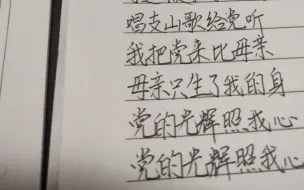 唱支山歌给党听
我把党来比母亲
母亲只生了我的身
党的光辉照我心
党的光辉照我心